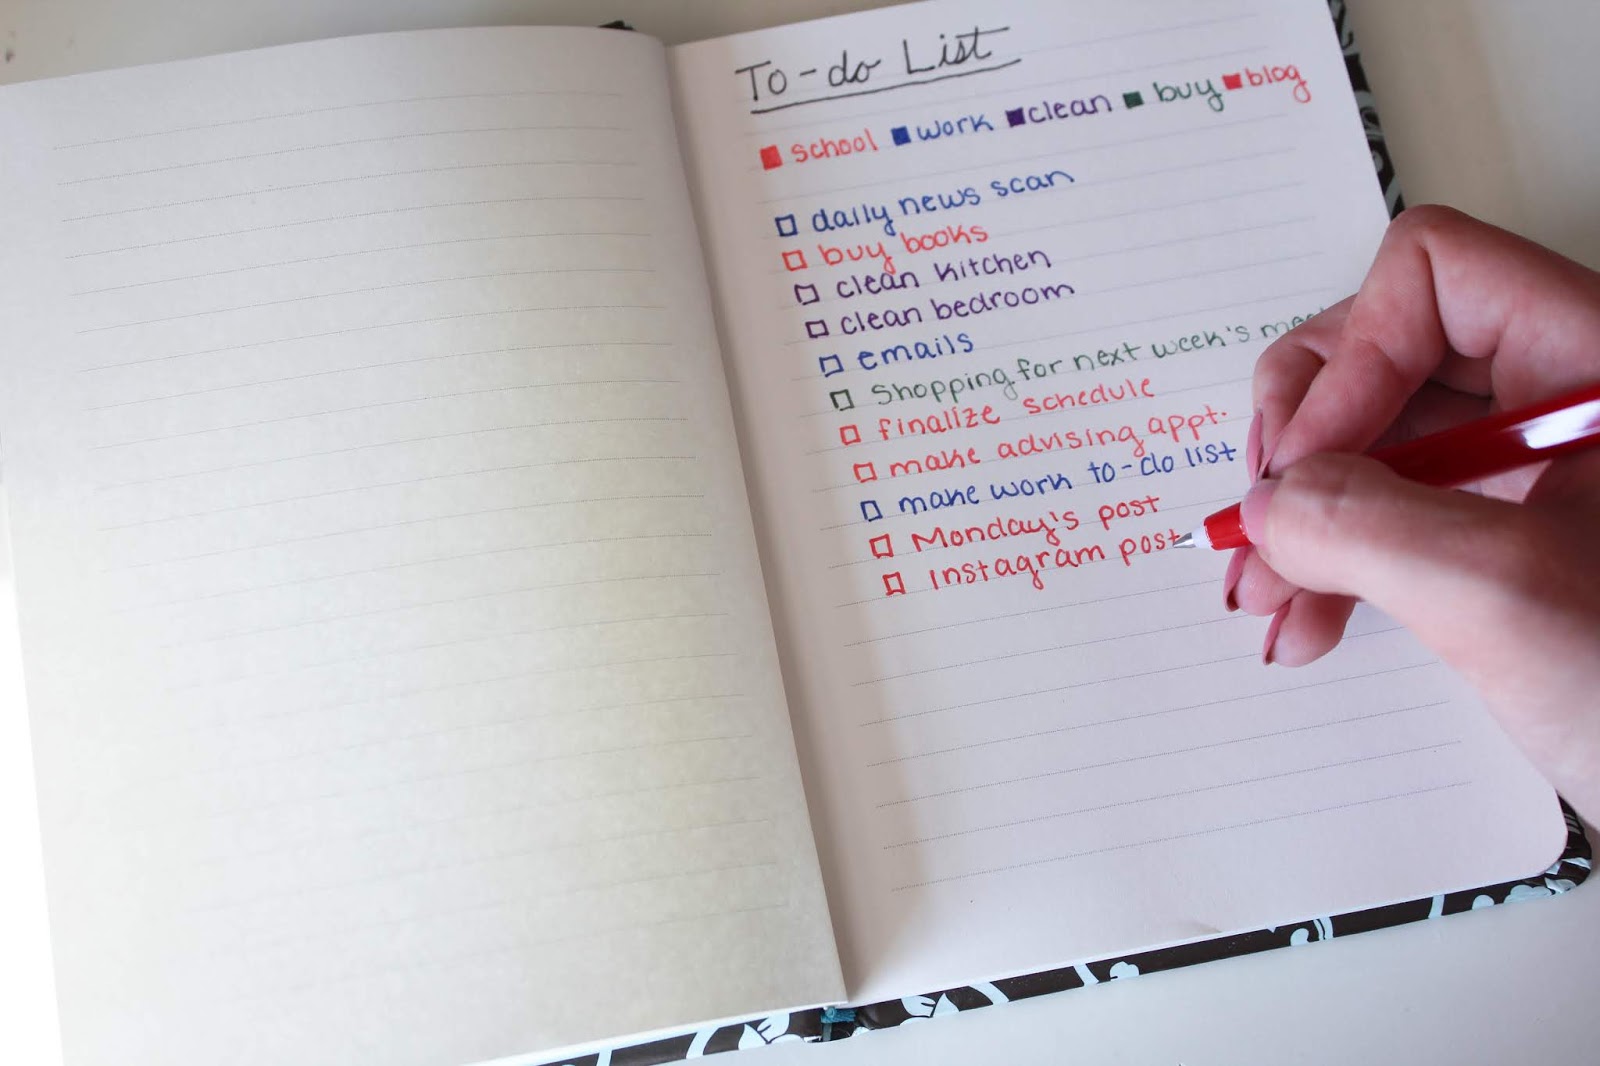 To-do List
school work clean buy blog
daily news scan
buy books
clean kitchen
clean bedroom
emails
Shopping for next week's
finalize schedule
make advising appt.
make work to-do list
Monday's post
Instagram post